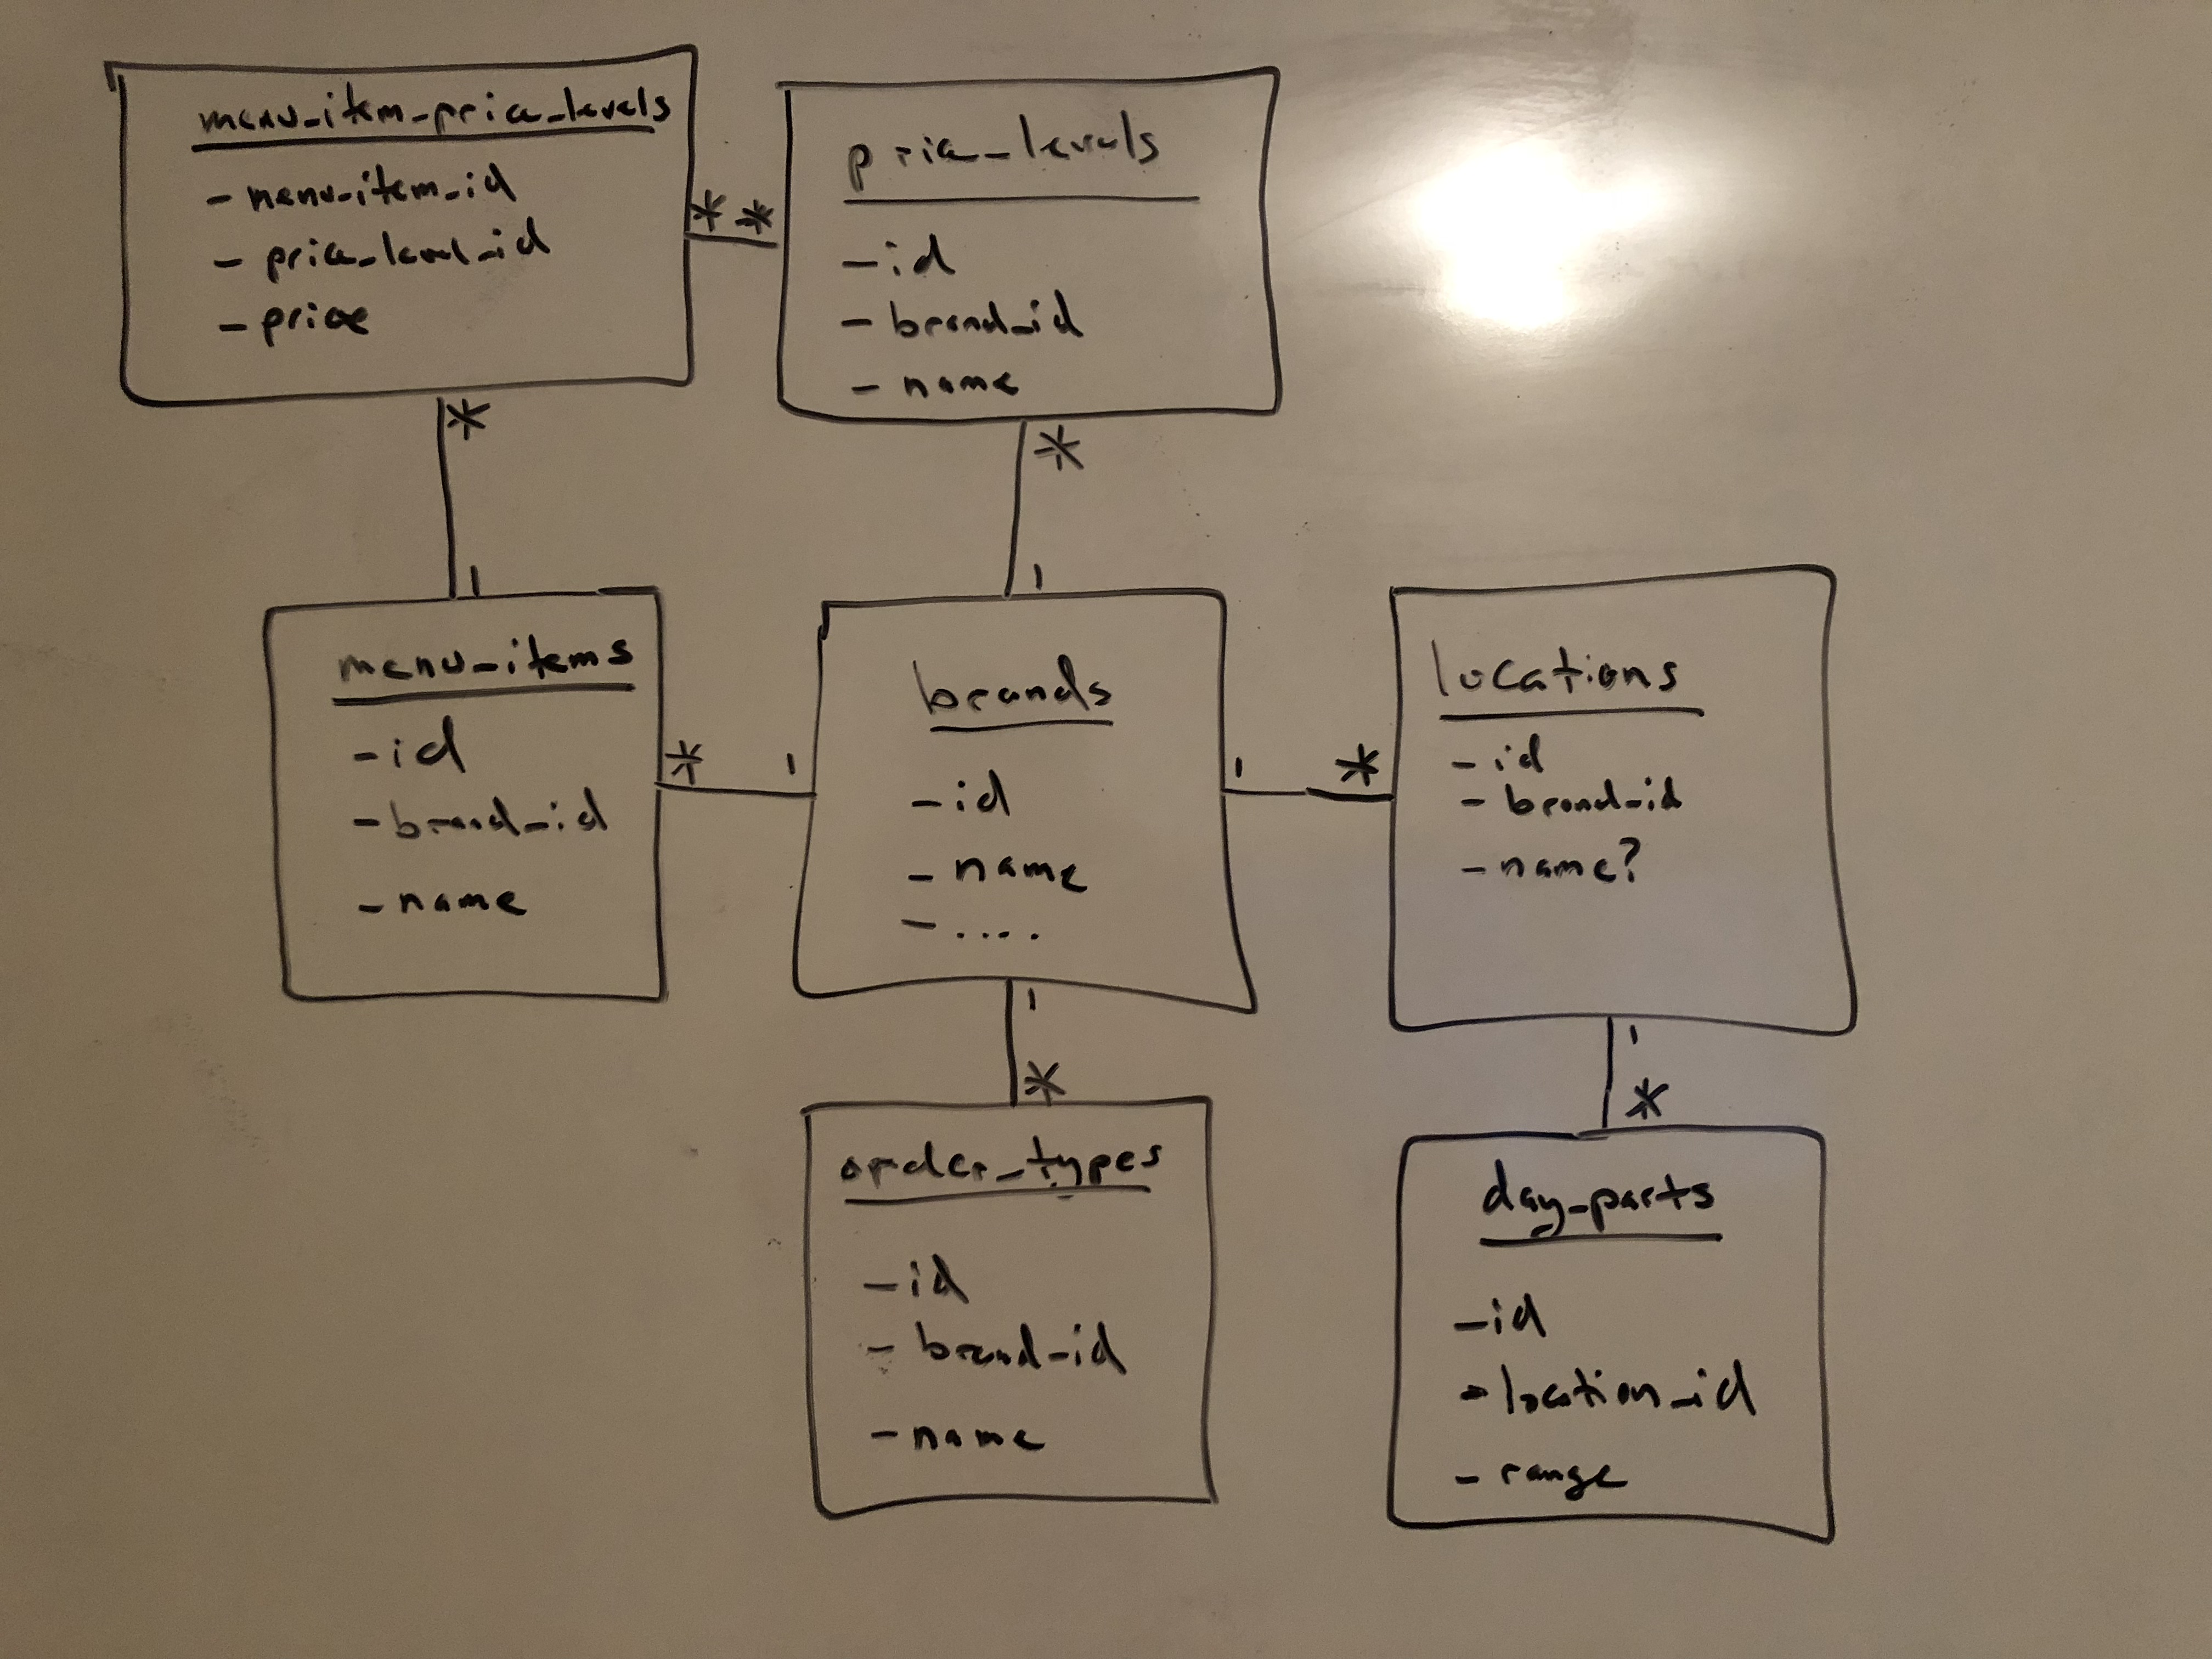 menu_item_price_levels
- menu_item_id
- price_level_id
- price
* *
price_levels
- id
- brand_id
- name
*
1
*
1
menu_items
- id
- brand_id
- name
* 1
brands
- id
- name
- ....
1 *
locations
- id
- brand_id
- name?
1
*
1
*
order_types
- id
- brand_id
- name
day_parts
- id
- location_id
- range